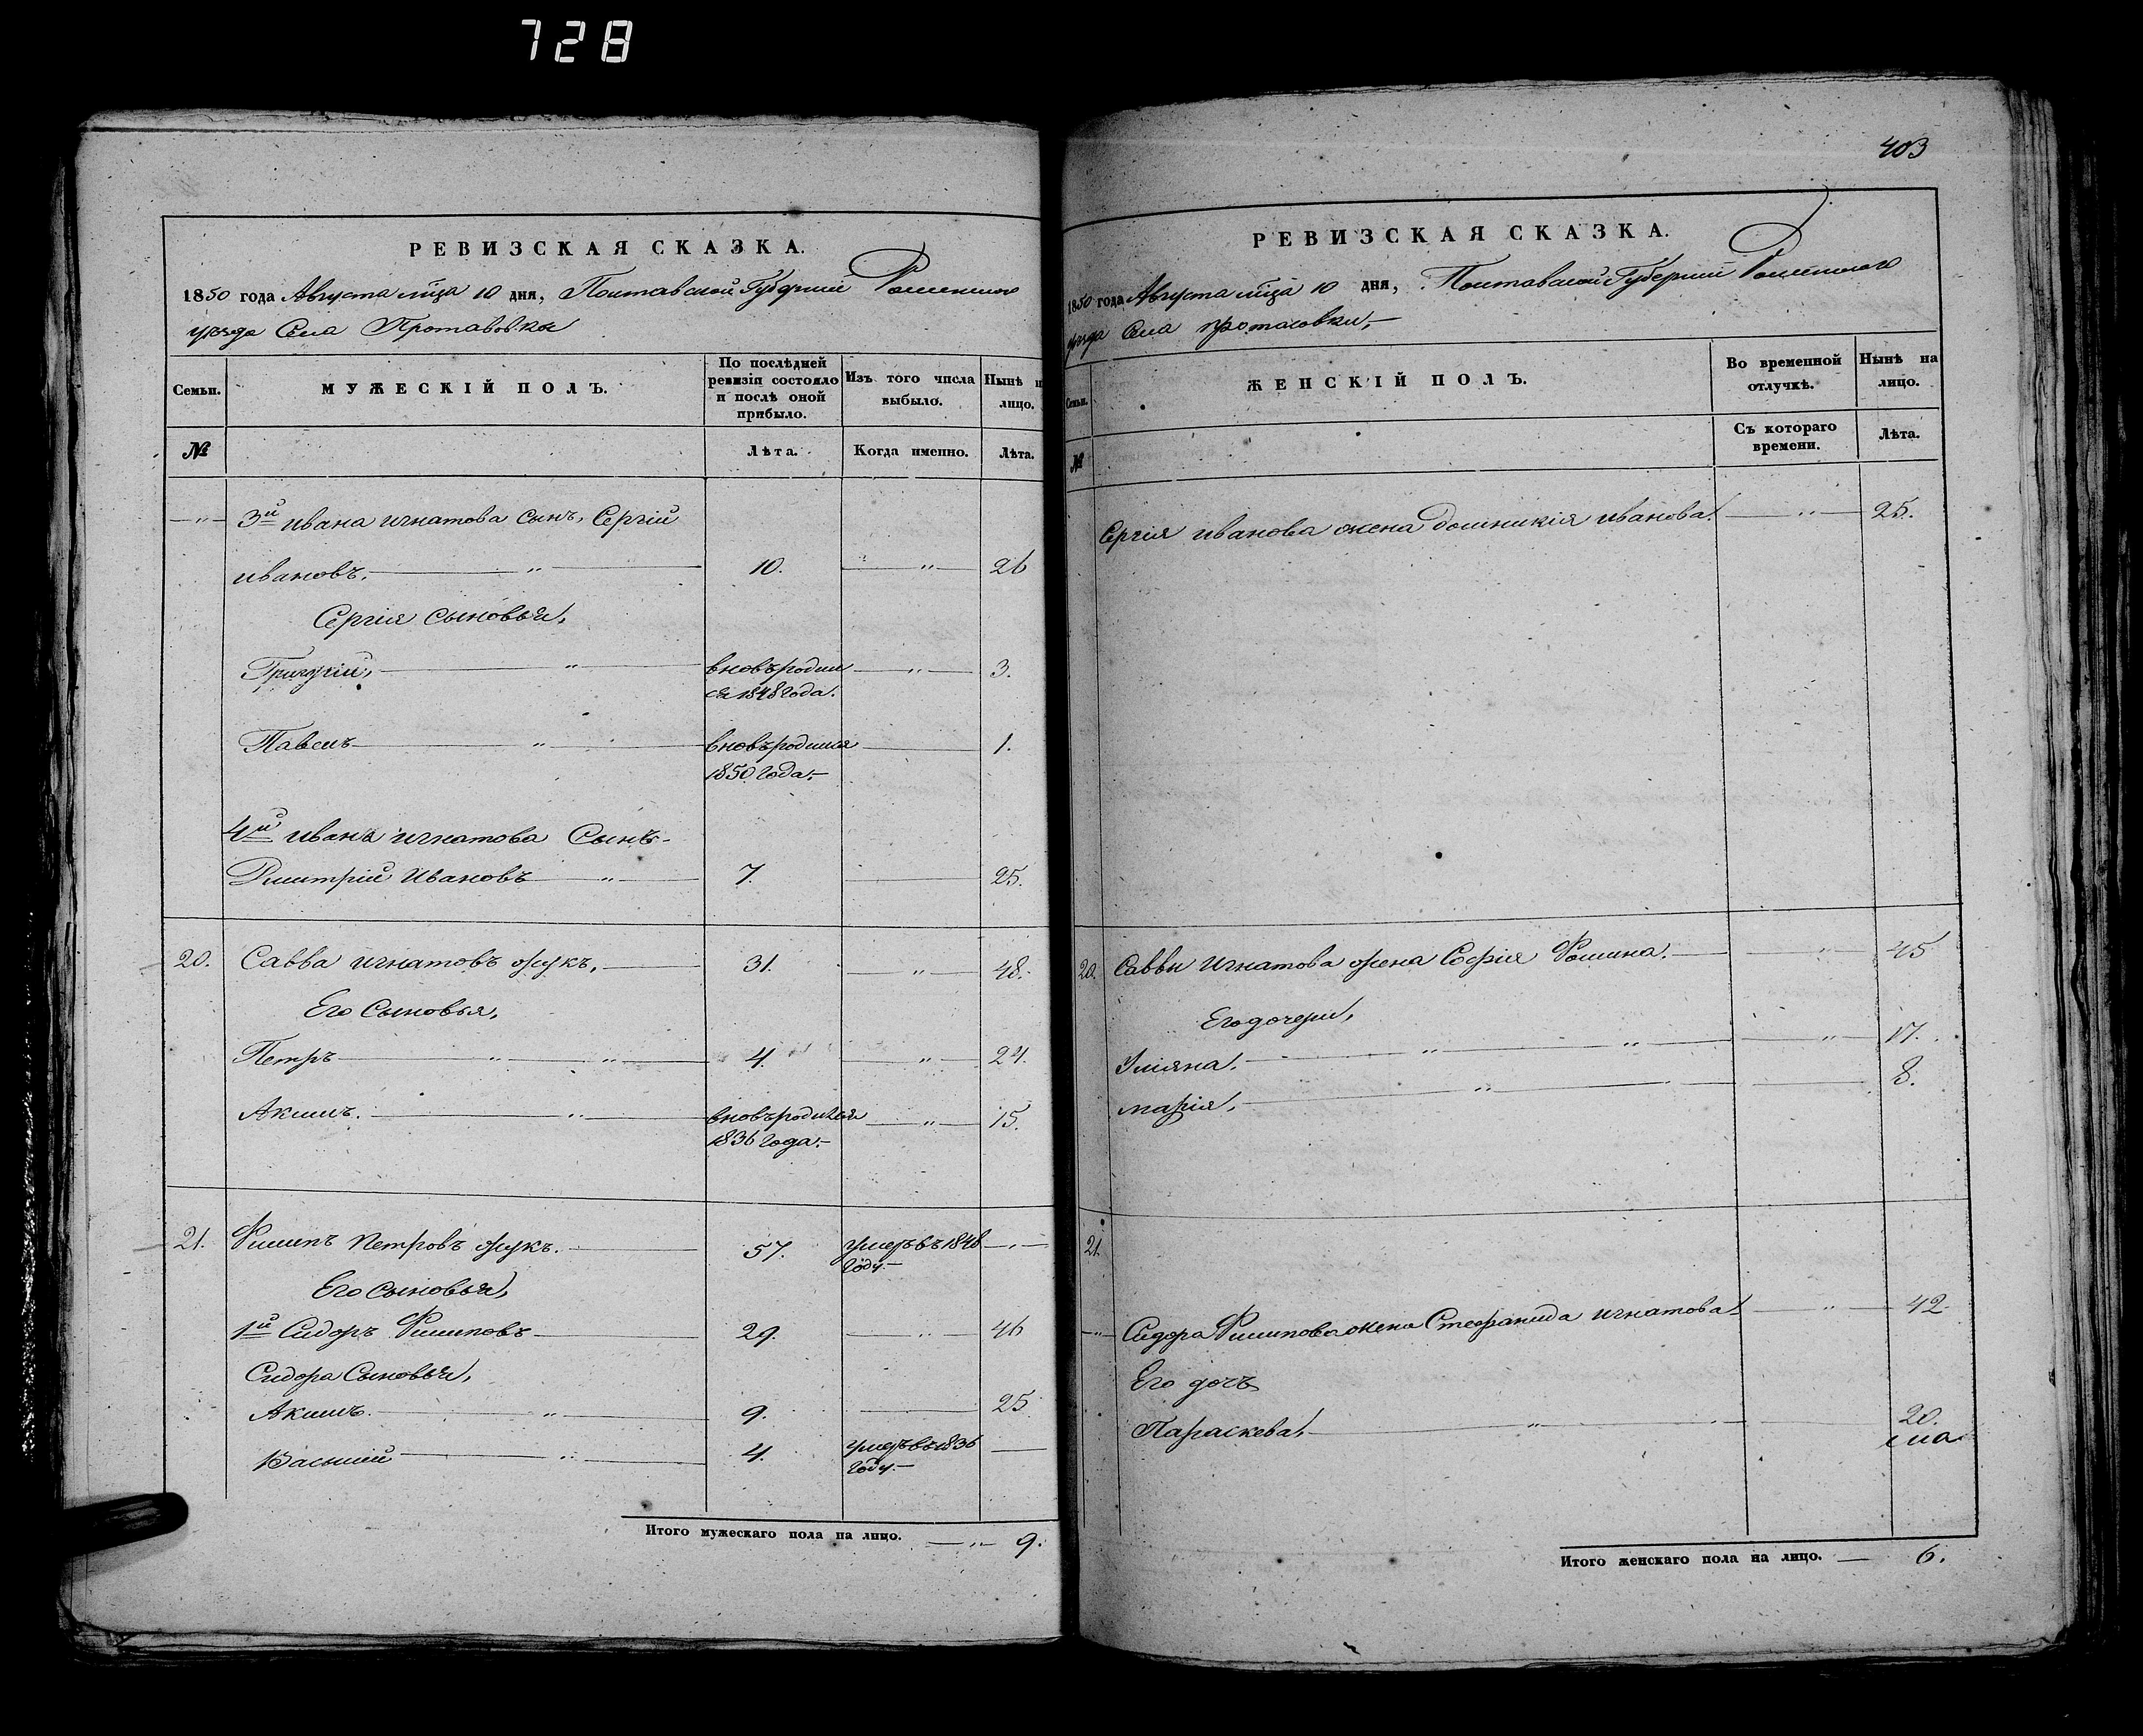 728
РЕВИЗСКАЯ СКАЗКА.
1850 года Августа м҃ца 10 дня, Полтавской Губерніи Роменского
уѣзда Села Протасовки
Семьи.
МУЖЕСКІЙ ПОЛЪ.
По послѣдней ревизіи состояло и послѣ оной прибыло.
Изъ того числа выбыло.
Нынѣ н лицо.
№
Лѣта.
Когда именно.
Лѣта.
3й ивана игнатова сынъ, Сергій
ивановъ. 10. 26
Сергія сыновья,
Григорій, вновь родил 3.
ся 1848 года.
Павелъ вновь родился 1.
1850 года.
4й ивана игнатова Сынъ
Дмитрій Ивановъ 7. 25.
20. Савва игнатовъ жукъ, 31. 48.
Его Сыновья,
Петръ 4. 21.
Акимъ. вновь родился 15.
1836 года.
21. Филипъ петровъ жукъ. 57. умеръ въ 1848
году.
Его Сыновья,
1й Сидоръ Филиповъ 29. 46
Сидора Сыновья,
Акимъ. 9. 25
Василий 4. умеръ въ 1836
году.
Итого мужескаго пола на лицо. 9.
403
РЕВИЗСКАЯ СКАЗКА.
1850 года Августа м҃ца 10 дня, Полтавской Губерніи Роменского
уѣзда Села протасовки,
Семьи.
ЖЕНСКІЙ ПОЛЪ.
Во временной отлучкѣ.
Нынѣ на лицо.
№
Съ котораго времени.
Лѣта.
Сергія иванова жена Домникія иванова. 25.
20. Саввы Игнатова жена Софія Фомина. 45
Его дочери,
Уліяна. 17.
марія, 8.
21.
Сидора Филипова жена Стефанида игнатова 42
Его дочь
Параскева, 20.
Итого женскаго пола на лицо. 6.